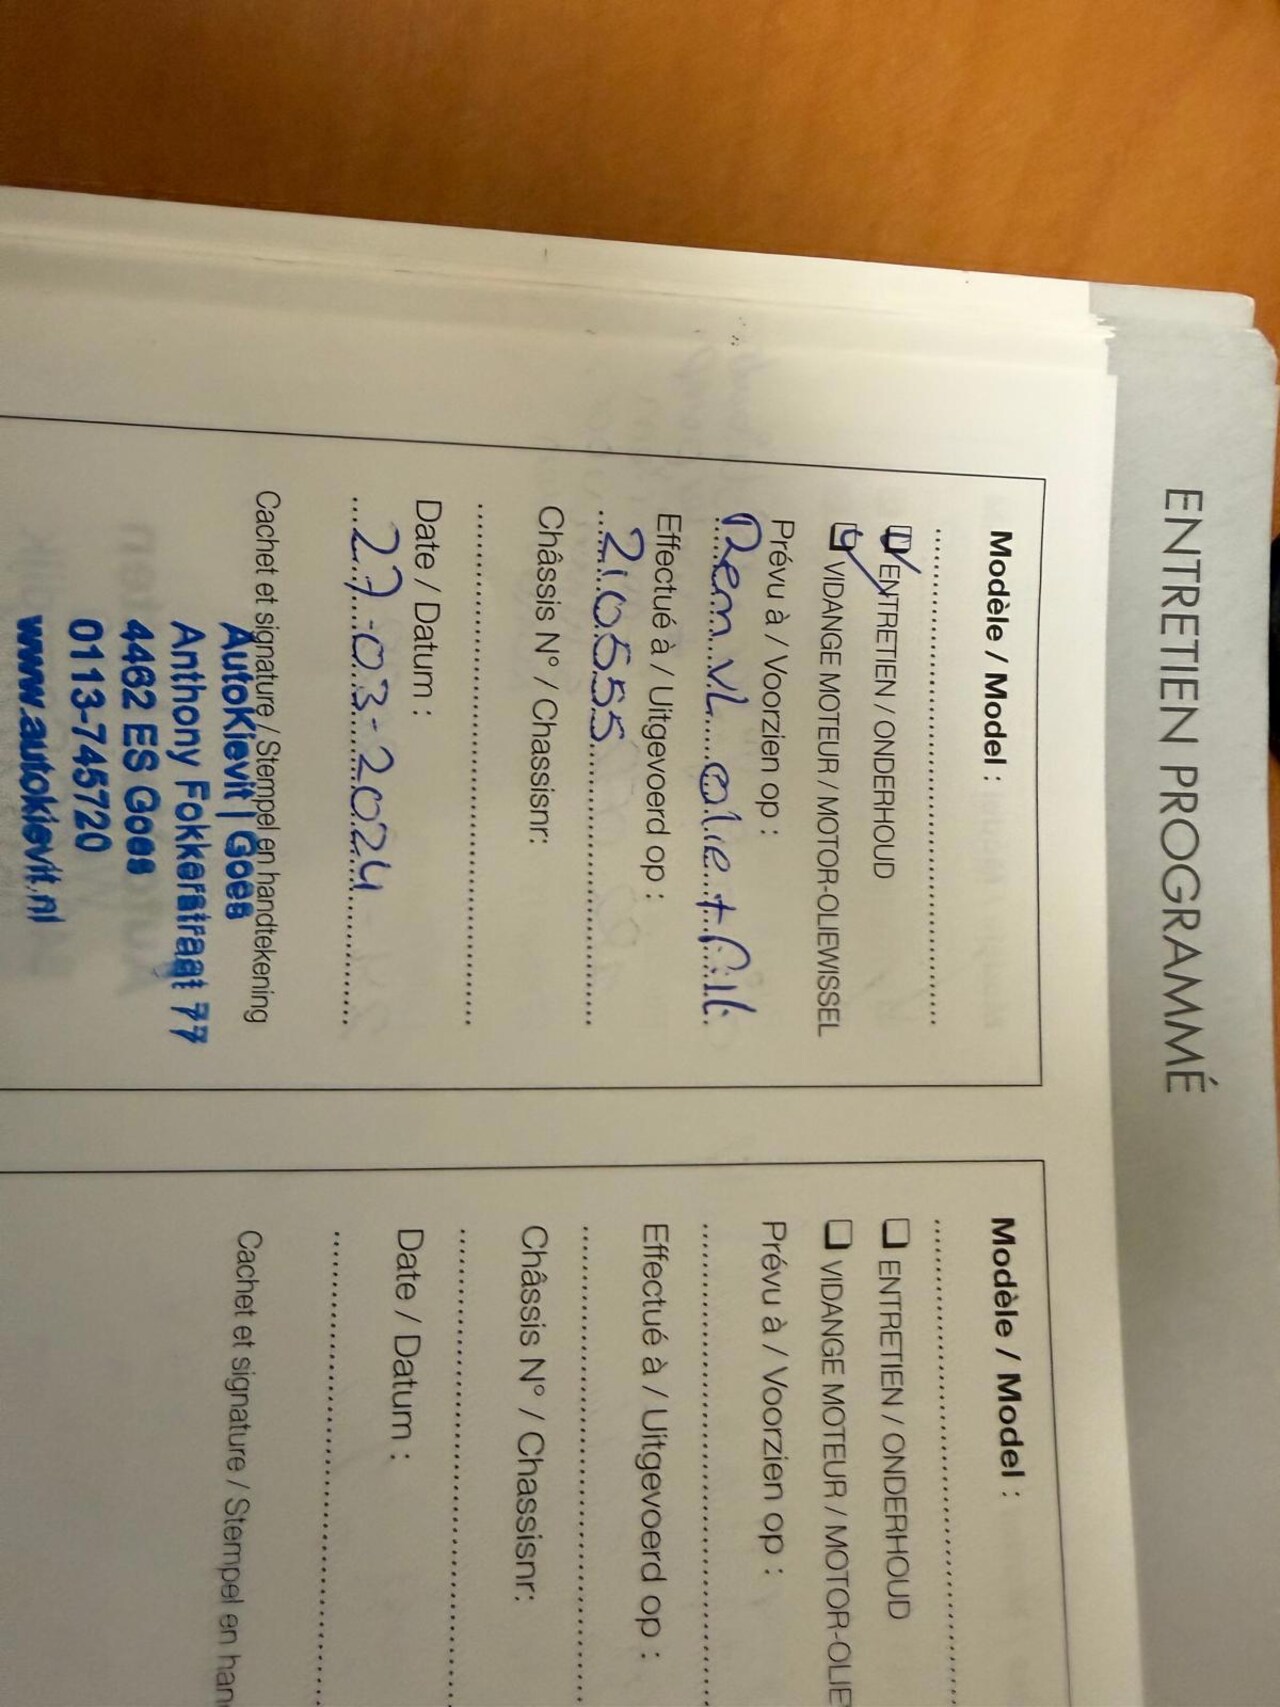 ENTRETIEN PROGRAMMÉ
Modèle / Model :
ENTRETIEN / ONDERHOUD
VIDANGE MOTEUR / MOTOR-OLIEWISSEL
Prévu à / Voorzien op :
Rem VL olie + filt.
Effectué à / Uitgevoerd op :
210555
Châssis N° / Chassisnr:
Date / Datum :
27-03-2024
Cachet et signature / Stempel en handtekening
AutoKievit | Goes
Anthony Fokkerstraat 77
4462 ES Goes
0113-745720
www.autokievit.nl
Modèle / Model :
ENTRETIEN / ONDERHOUD
VIDANGE MOTEUR / MOTOR-OLIEW
Prévu à / Voorzien op :
Effectué à / Uitgevoerd op :
Châssis N° / Chassisnr:
Date / Datum :
Cachet et signature / Stempel en han